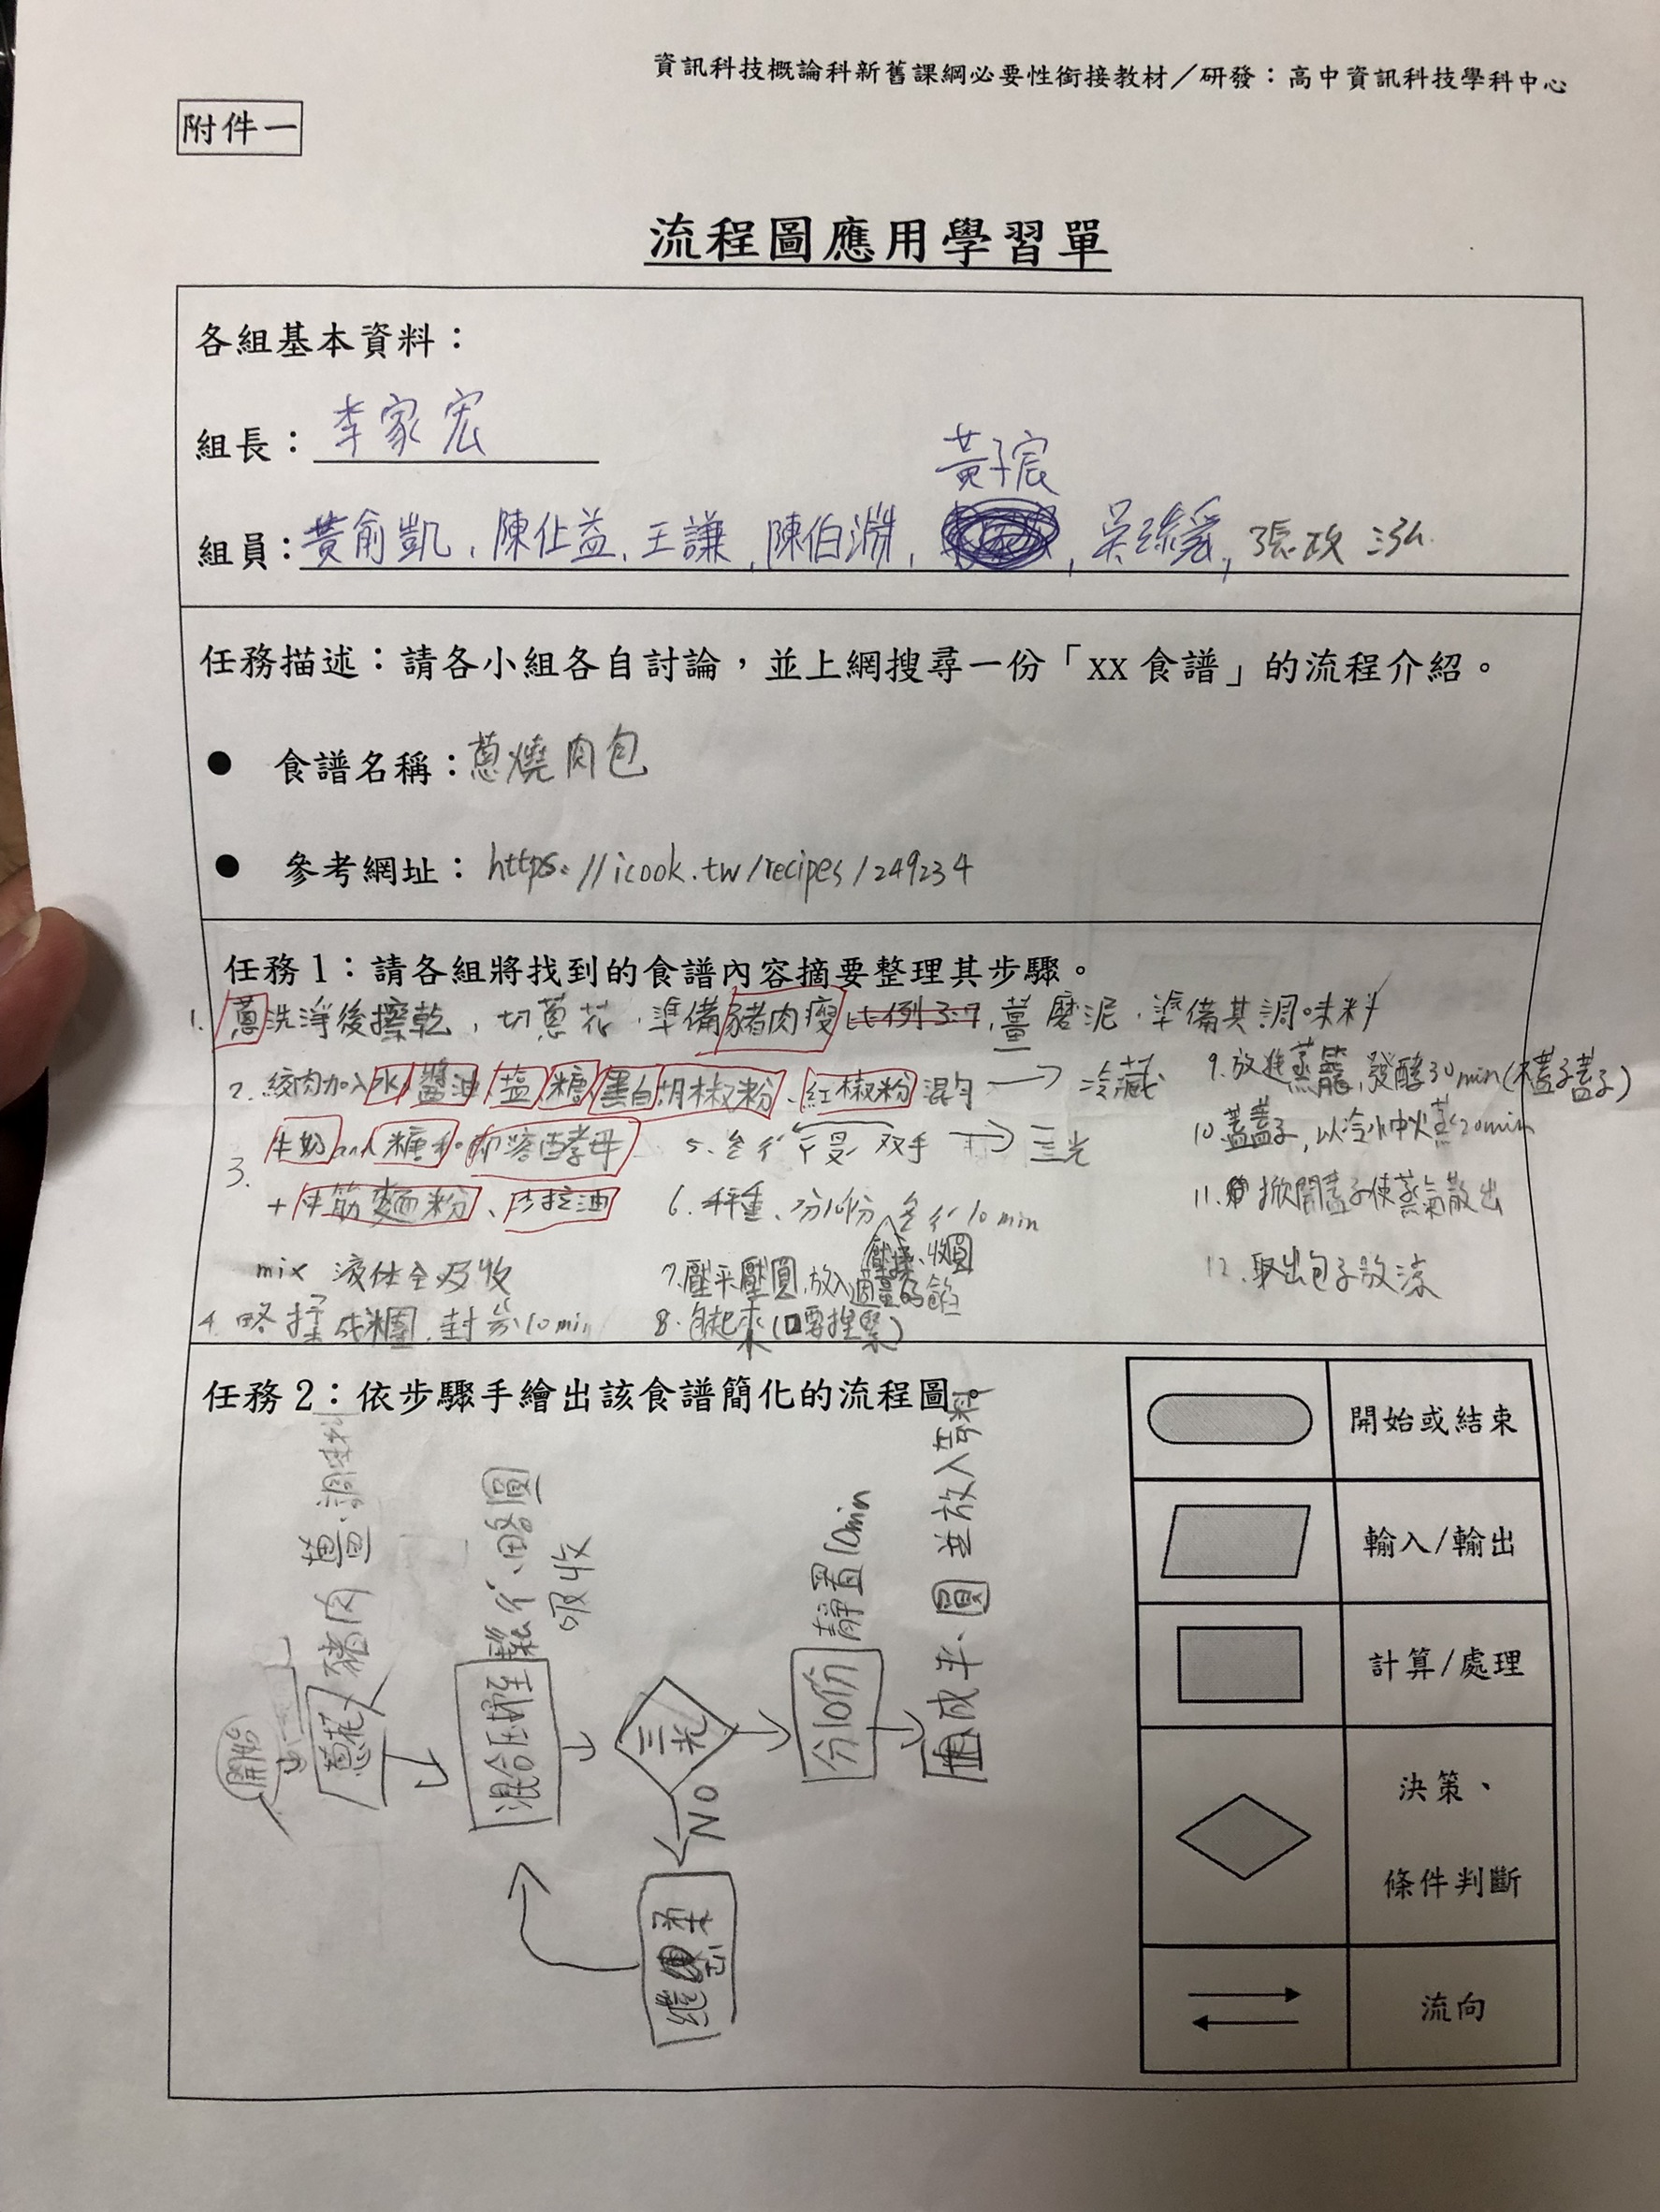 資訊科技概論科新舊課綱必要性銜接教材／研發：高中資訊科技學科中心
附件一
流程圖應用學習單
各組基本資料：
組長：李家宏
黃子宸
組員：黃俞凱、陳仕益、王謙,陳伯淵,
任務描述：請各小組各自討論，並上網搜尋一份「xx 食譜」的流程介紹。
● 食譜名稱：蔥燒肉包
● 參考網址：https://icook.tw/recipes/249234
任務 1：請各組將找到的食譜內容摘要整理其步驟。
1. 蔥洗淨後擦乾，切蔥花，準備豬肉瘦比例3:7,薑磨泥，準備其調味料
2. 絞肉加入水/醬油/塩/糖/蛋白胡椒粉、紅椒粉混勻→冷藏
3. 牛奶and糖和即溶酵母
+中筋麵粉、沙拉油
mix 液体全吸收
4. 略揉成糰,封 10min
5. 双手→三光
6. 秤重、分10份 10min
壓揉、收圓
7. 壓平壓圓,放入適量的餡
8. 包起來(口要捏緊)
9. 放進蒸籠,發酵30min(不蓋蓋子)
10. 蓋蓋子,以冷水中火蒸20min
11. 掀開蓋子使蒸氣散出
12. 取出包子放涼
任務 2：依步驟手繪出該食譜簡化的流程圖。
開始
蔥花 豬肉 薑
混合至
吸收
三光
NO
分10份 靜置10min
成平、圓 並放入
開始或結束
輸入/輸出
計算/處理
決策、
條件判斷
流向